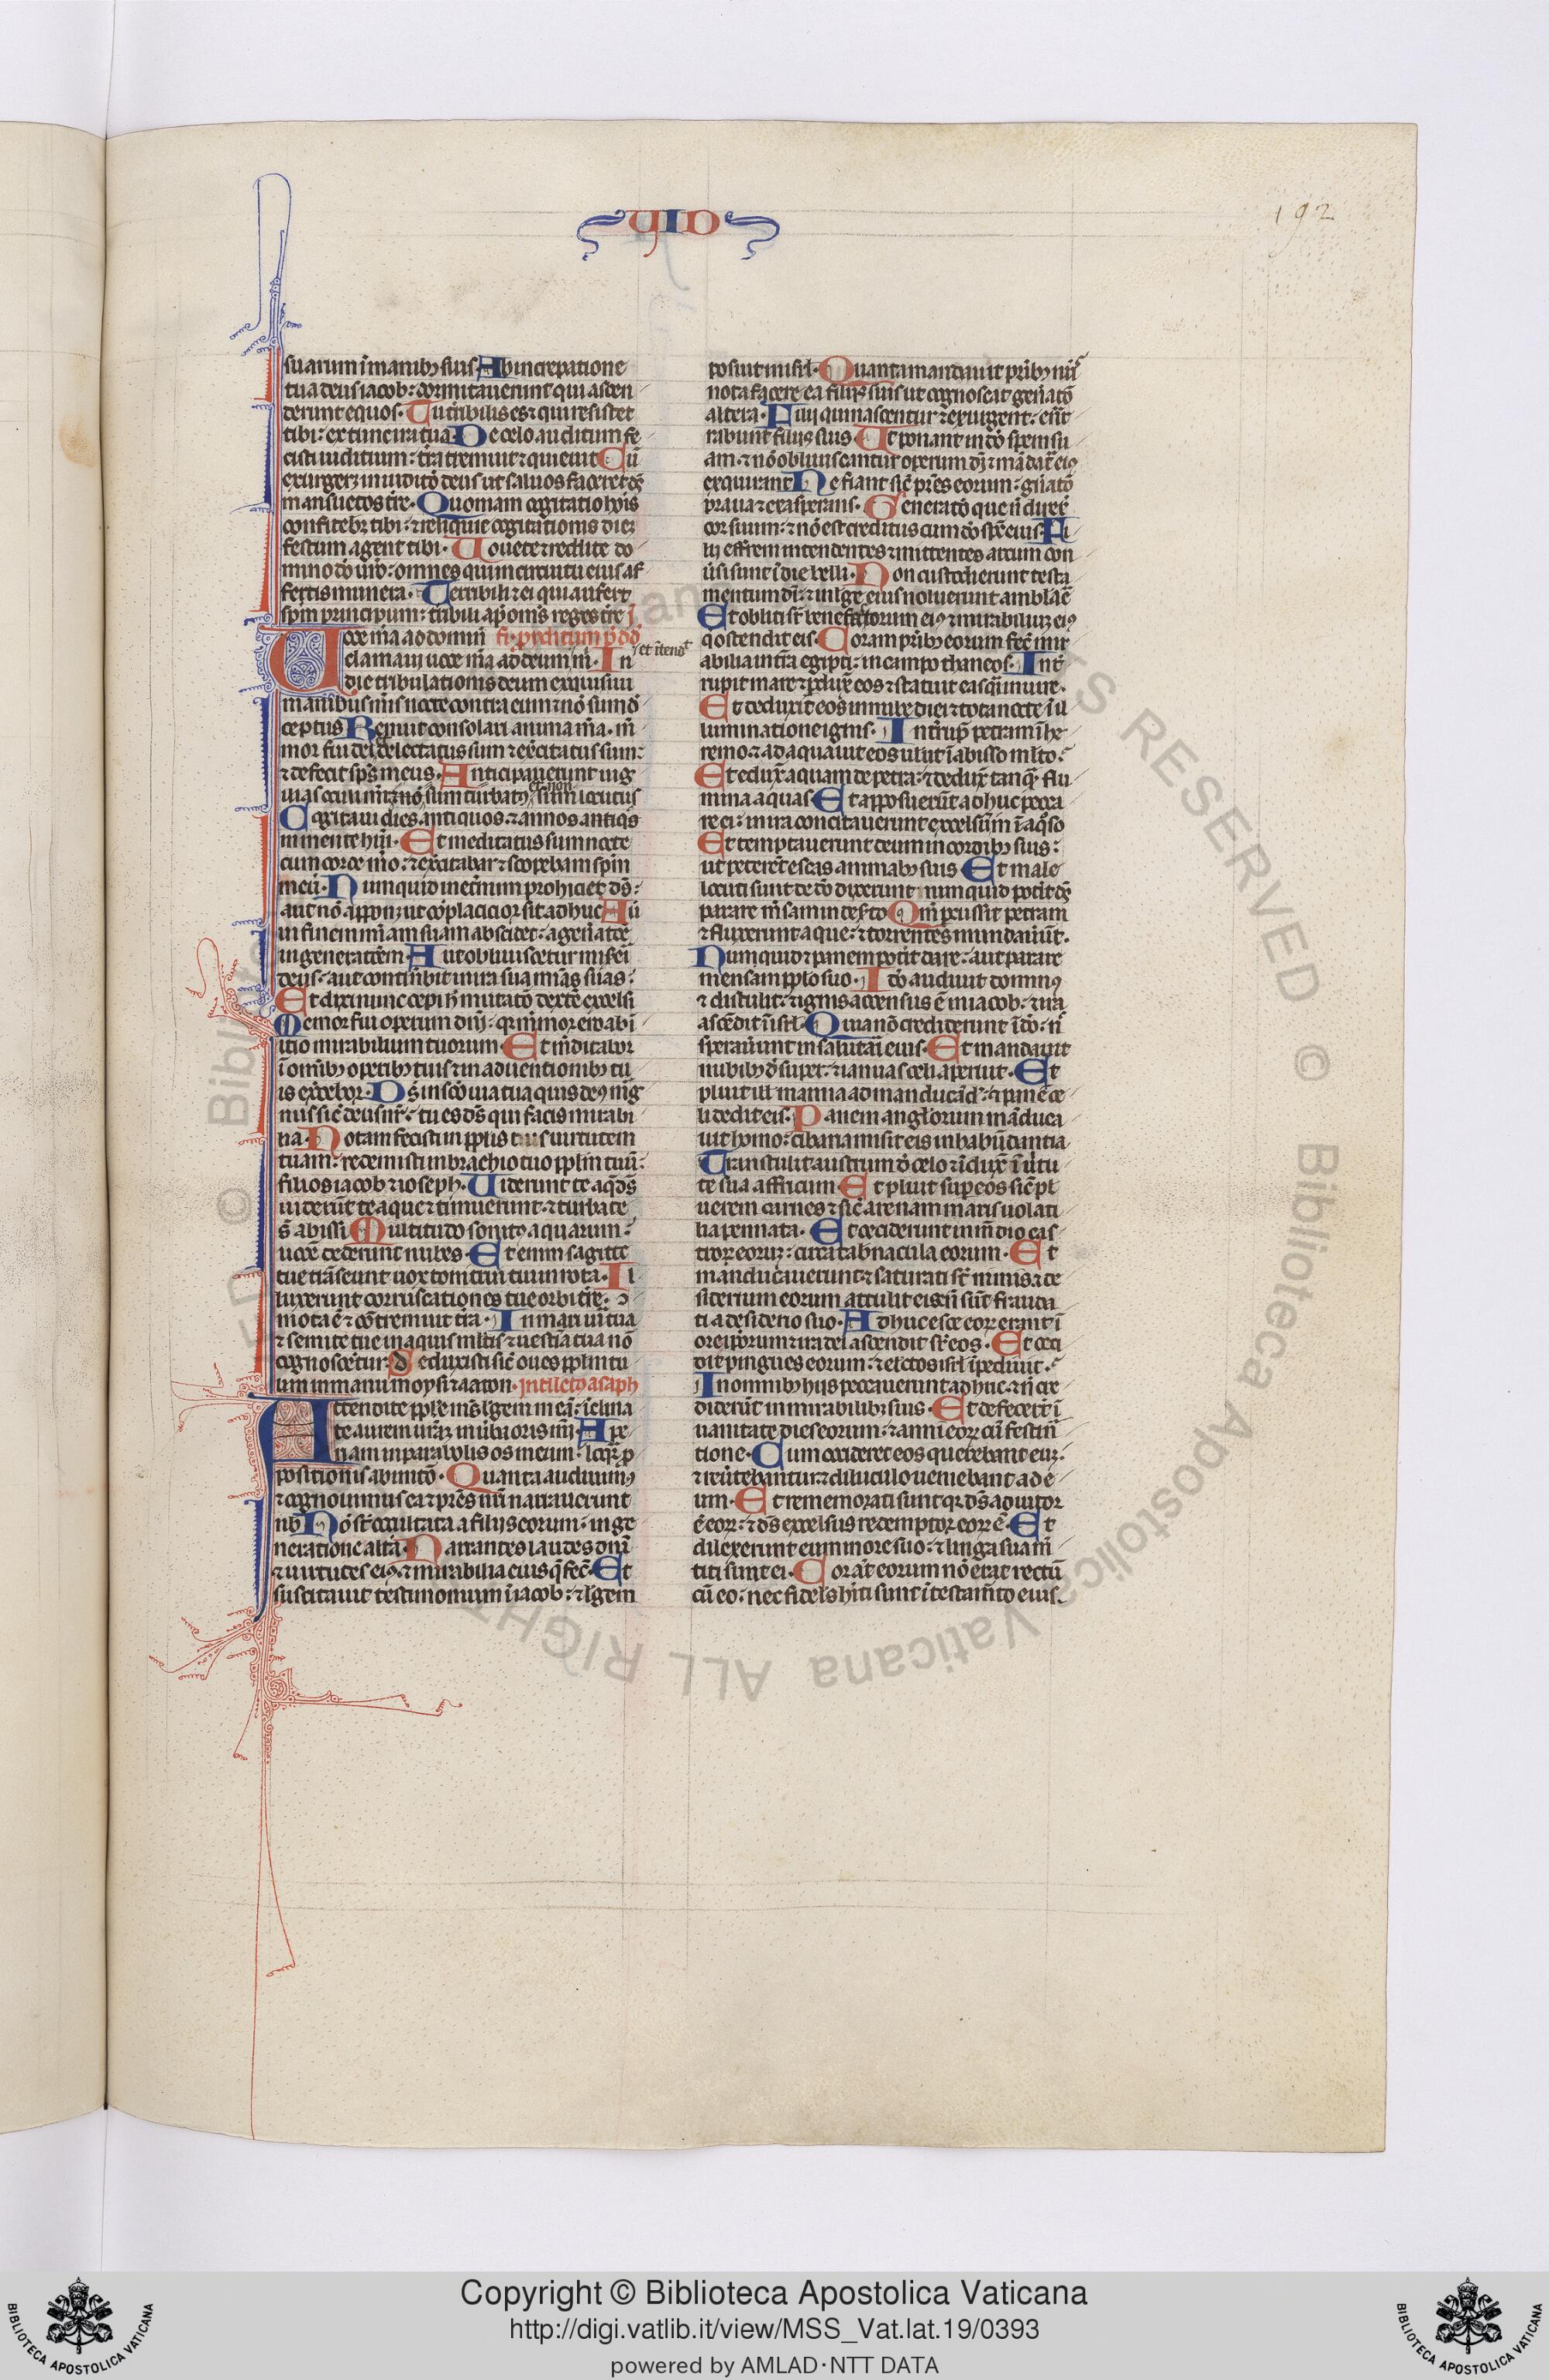 YID
192
suarum i manibꝫ suis. Ab increpatione
tua deus iacob: dormitauerunt qui ascen
derunt equos. Tu tribilis es ⁊ qui resistet
tibi: ex tunc ira tua. De celo auditum fe
cisti iuditium: tra tremuit ⁊ quieuit Cū
exurgeꝫ in iuditō deus ut saluos faceret ōs
mansuetos tre. Quoniam cogitatio hōis
confitebꝫ tibi: ⁊ reliquie cogitationis diez
festum agent tibi. Uouete ⁊ reddite do
mino dō uro: omnes qui in circuitu eius af
fertis munera. Terribili ⁊ ei qui aufert
spm principum: tribili apd omīs reges tre
Uoce mā ad domin
clamaui uoce mā ad deum m̄. In
et ītend'
die tribulationis deum exquisiui
manibus m̄is nocte contra eum ⁊ nō sum d
ceptus Renuit consolari anima mā. m̄
mor fui dei ⁊ delectatus sum ⁊ exc̄itatus sum:
⁊ defecit sp̄s meus. Anticipauerunt uig
uias oculi m̄i ⁊ nō sum turbatꝰ et non sum locutus
Cogitaui dies antiquos ⁊ annos antiqs
in mente hūi. Et meditatus sum nocte
cum corde m̄o: ⁊ exc̄itabar ⁊ scopebam spm
meū. Numquid in et̄num prohiciet ds:
aut nō apponꝫ ut cōplacicior sit adhuc Aū
in finem m̄iam suam abscidet: a gen̄atōe
in generatōem Aut obliuiscetur misēi
deus: aut contin̄bit in ira sua m̄ias suas:
Et dixi nunc cepi h̄ mutatō dextē excelsi
Memor fui operum dn̄i: qr m̄mor ero ab i
itio mirabilium tuorum. Et m̄ditabor
ī omībꝫ operibꝫ tuis: ⁊ in aduentionibꝫ tu
is exc̄ebor. Ds̄ in scō uia tua quis deꝰ mag
nus sic̄ deus nr̄: tu es ds̄ qui facis mirabi
lia. Notam fecisti in pplis tuis uirtutem
tuam: redemisti in brachio tuo pplm tuū:
filios iacob ⁊ ioseph. Uiderunt te aq̄ ds
uiderūt te aque ⁊ timuerunt: ⁊ turbate
s̄ abissi Multitudo sonitꝰ aquarum:
uocē dederunt nubes. Et enim sagitte
tue trāseunt uox tonitrui tui in rota. Il
luxerunt corruscationes tue orbi tre:
mota ē ⁊ cōtremuit tra. In mari uia tua
⁊ semite tue in aquis mltis ⁊ uestia tua nō
cognoscētur: Deduxisti sic̄ oues pplm tu
um in manu moysi ⁊ aaron. Intellectꝰ asaph
Attendite pple ms̄ lgem meā: īclina
te aurem ur̄aꝫ in ūba oris m̄i. Ape
riam in parabolis os meum: loqr̄ p
positionis ab initō. Quanta audiuimꝰ
⁊ cognouimus ea ⁊ prēs nr̄i narrauerunt
nb Nō st̄ occultata a filijs eorum: in ge
neratione altā. Narrantes laudes dnī
⁊ uirtutes eiꝰ ⁊ mirabilia eius q̄ fec̄. Et
suscitauit testimonium ī iacob: ⁊ lgem
posuit in isrl. Quanta mandauit pribꝫ nr̄i
nota facere ea filijs suis ut cognoscat gen̄atō
altera. Filij qui nascentur ⁊ exurgent: en̄r
rabunt filijs suis. Ut ponant in dō spem su
am ⁊ nō obliuiscantur operum dī ⁊ mādata eiꝰ
exquirant Ne fiant sic̄ prēs eorum: gn̄atō
praua ⁊ exasperans. Generatō que n̄ direx̄
cor suum: ⁊ nō est creditus cum dō spc̄ eius. Fi
lij effrem intendentes ⁊ mittentes arcum con
ūsi sunt ī die belli. Non custodierunt testa
mentum dī: ⁊ in lge eius noluerunt amblaē
Et obliti st̄ benefactorum eiꝰ ⁊ mirabiliuꝫ eiꝰ
q ostendit eis. Coram pribꝫ eorum fec̄ mir
abilia in tra egipti: in campo thaneos. Int
rupit mare ⁊ pdux̄ eos ⁊ statuit eas q̄i in utre.
Et deduxit eos in nube diei ⁊ tota nocte ī il
luminatione ignis. Intrup̄ petram ī he
remo: ⁊ adaquauit eos ulut ī abisso mlto:
Et edux̄ aquam de petra: ⁊ dedux̄ tanq̄ flu
mina aquas Et apposuerūt adhuc pecca
re ei: in ira concitauerunt excelsum ī aqoso
Et temptauerunt deum in cordibꝫ suis:
ut peterēt escas animabꝫ suis Et male
locuti sunt de dō dixerunt: numquid potit ds
parare m̄sam in deserto Qm̄ pcussit petram
⁊ fluxerunt aque: ⁊ torrentes inundauūt.
Numquid ⁊ panem potit dare: aut parare
mensam pplo suo. Idō audiuit dominꝰ
⁊ distulit: ⁊ ignis accensus ē in iacob: ⁊ ira
ascēdit ī isrl. Quia nō crediderunt ī dō: n̄
sperauunt in salutari eius. Et mandauit
nubibꝫ dsuper: ⁊ ianuas celi aperuit. Et
pluit ill' manna ad manducād': ⁊ panē ce
li dedit eis. Panem anglorum māduca
uit homo: cibaria misit eis in habūdantia
Transtulit austrum d celo: ⁊ īdux̄ ī uirtu
te sua affricum Et pluit sup eos sic̄ pl
uerem carnes ⁊ sic̄ arenam maris uolati
lia pennata. Et ceciderunt in m̄dio cas
troꝝ eoruꝫ: circa tabnacula eorum. Et
manducauerunt ⁊ saturati st̄ nimis ⁊ de
siderium eorum attulit eis n̄ sūt frauda
ti a desiderio suo. Adhuc esce eoꝝ erant ī
ore ipsorum ⁊ ira dei ascendit sr̄ eos. Et occi
dit pingues eorum: ⁊ elctos isrl īpediuit.
In omnibꝫ hijs peccauerunt adhuc: ⁊ n̄ cre
diderūt in mirabilibꝫ suis. Et defecer̄t ī
uanitate dies eorum: ⁊ anni eoꝝ cū festin
tione. Cum occideret eos querebant euꝫ.
⁊ reūtebantur: ⁊ diluculo ueniebant ad e
um. Et rememorati sunt qr ds̄ adiutor
ē eoꝝ: ⁊ ds̄ excelsus redemptor eoꝝ ē. Et
dilexerunt eum in ore suo: ⁊ linga sua m̄
titi sunt ei. Cor aūt eorum nō erat rectū
cū eo: nec fideles hīti sunt ī testam̄to eius.
Copyright © Biblioteca Apostolica Vaticana
http://digi.vatlib.it/view/MSS_Vat.lat.19/0393
powered by AMLAD·NTT DATA
BIBLIOTECA APOSTOLICA VATICANA
BIBLIOTECA APOSTOLICA VATICANA